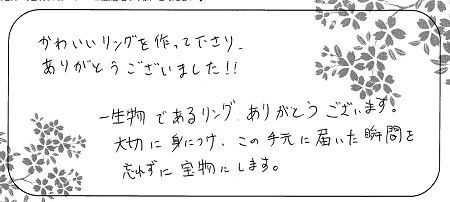 かわいいリングを作って下さり、
ありがとうございました!!
一生物であるリング、ありがとうございます。
大切に身につけ、この手元に届いた瞬間を
忘れずに宝物にします。